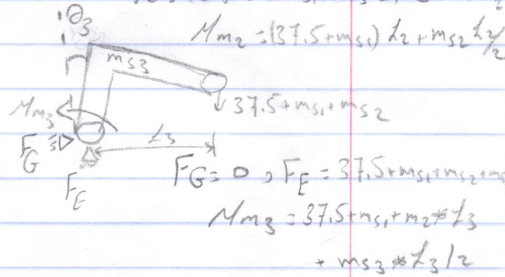 θ3
Mm2 = (37.5+ms1) L2 + ms2 L2/2
ms3
Mm3
37.5+ms1+ms2
L3
FG
FG = 0, FE = 37.5+ms1+ms2+ms
FE
Mm3 = 37.5+ms1+m2*L3
+ ms3*L3/2